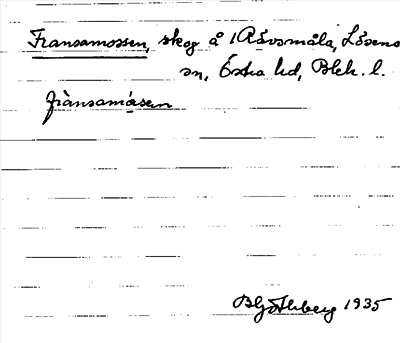 Fransamossen, skog å 1 Rävsmåla, Lösens
sn, Östra hd, Blek. l.
fránsamåsen
1935